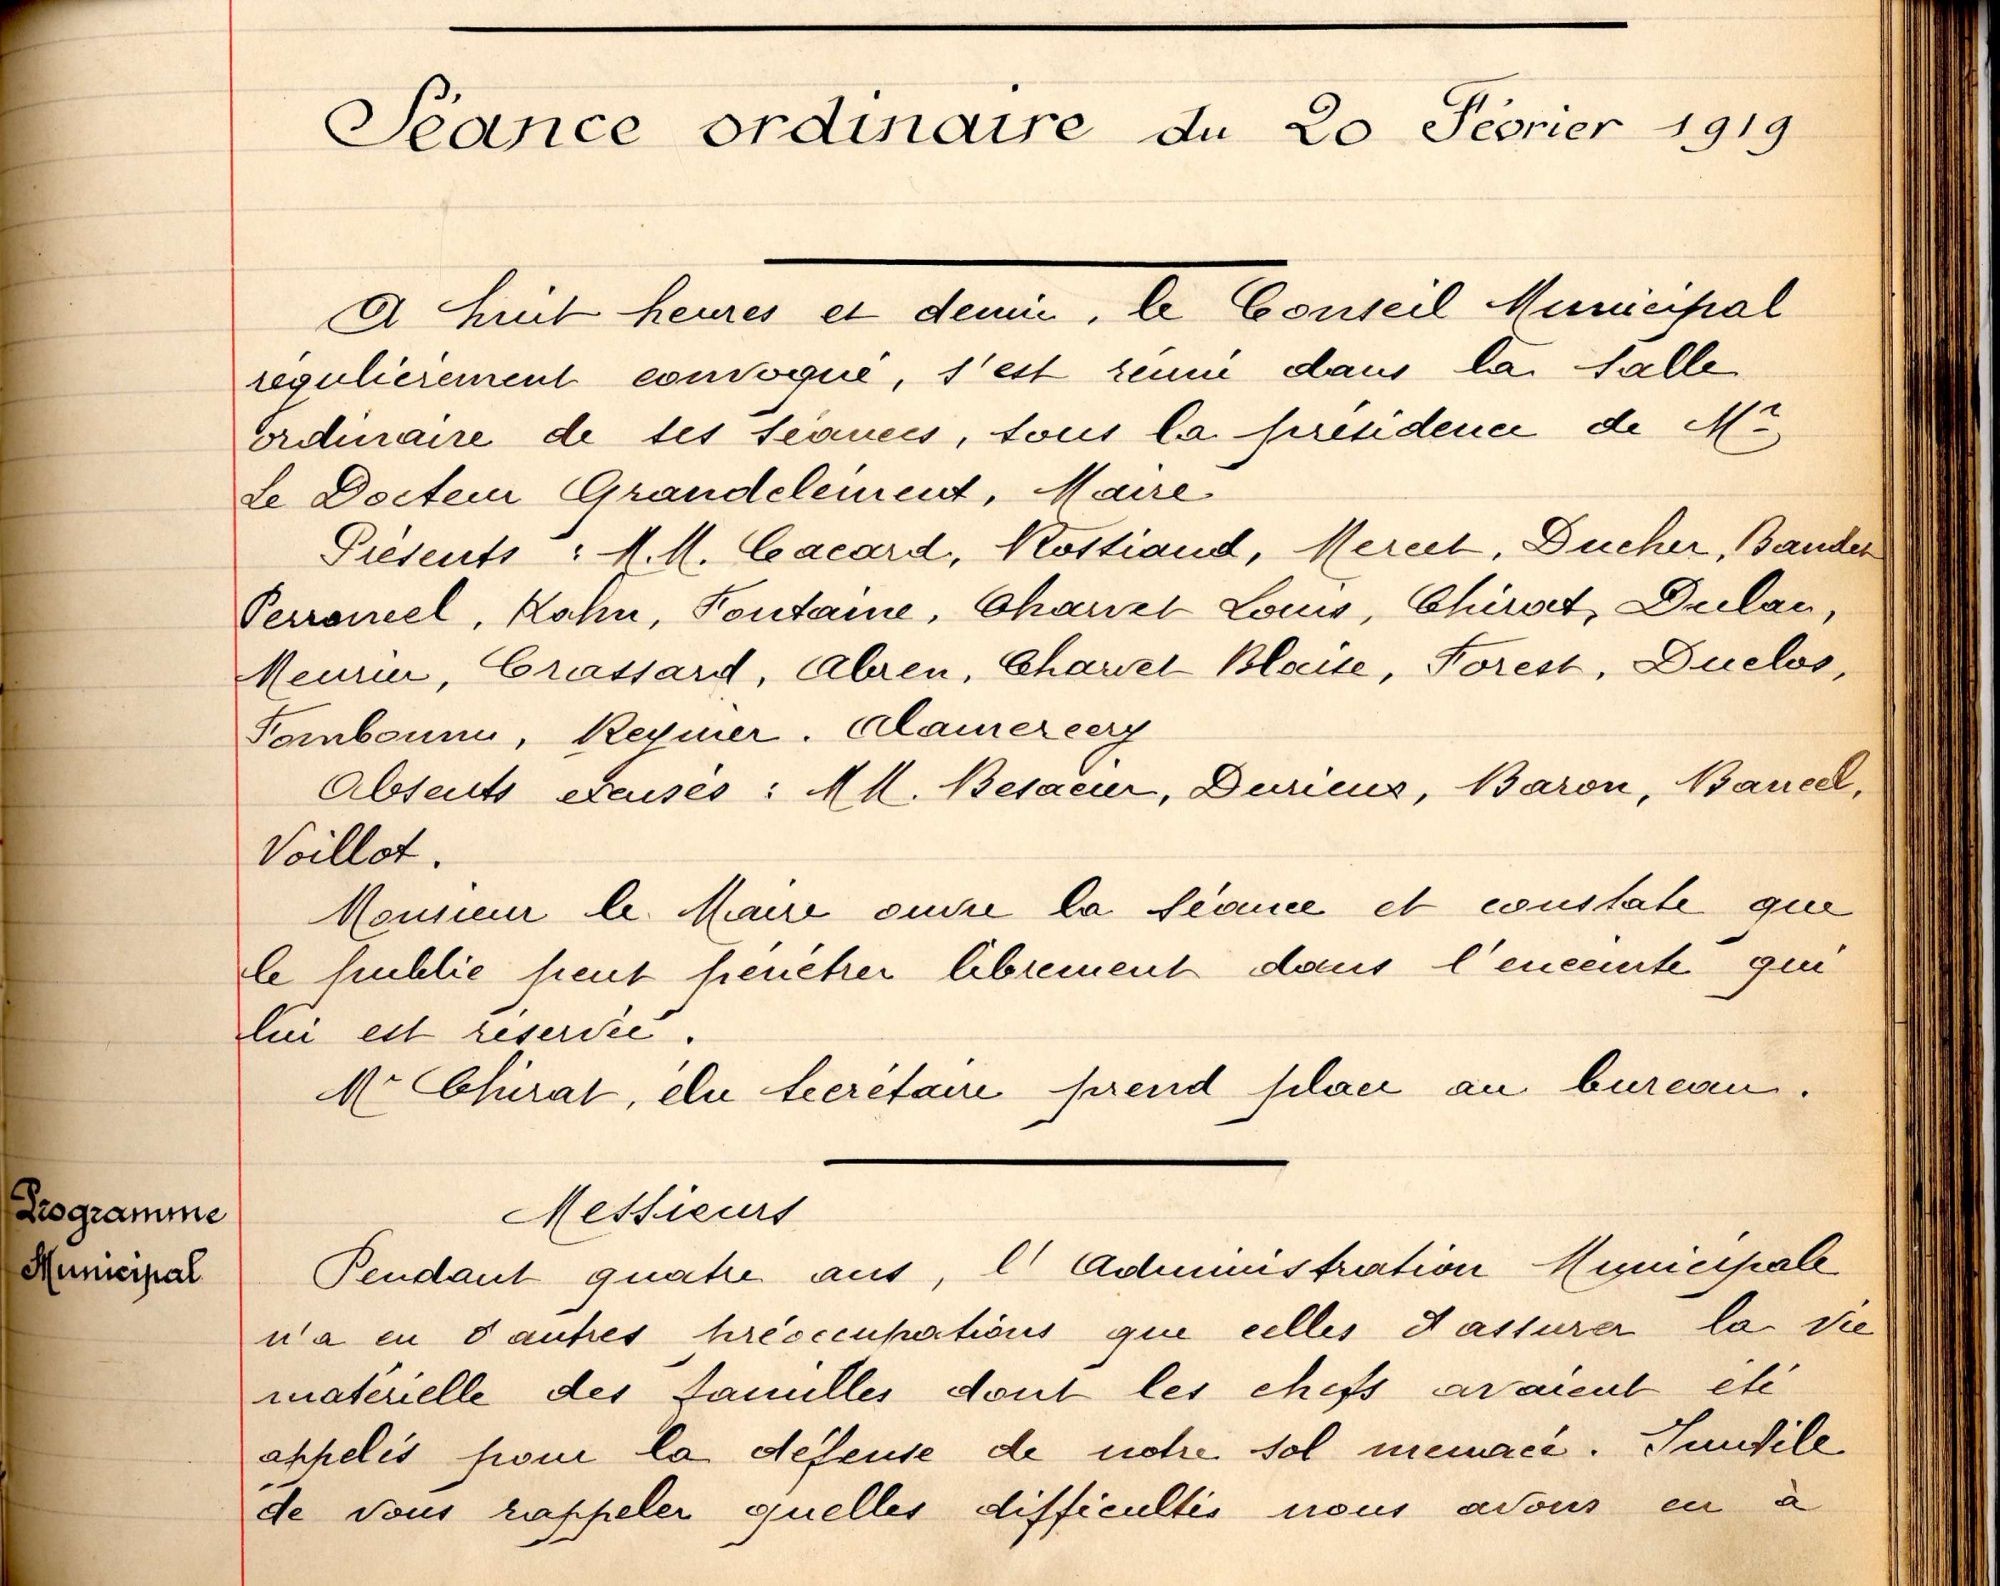 Séance ordinaire du 20 Février 1919
A huit heures et demie, le Conseil Municipal
régulièrement convoqué, s'est réuni dans la salle
ordinaire de ses séances, sous la présidence de Mr
le Docteur Grandclément, Maire
Présents : M.M. Cacard, Rossiaud, Mercet, Ducher,
Perroncel, Kahn, Fontaine, Charvet Louis, Chirat, Dulau,
Meurer, Crassard, Abren, Charvet Blaise, Forest, Duclos,
Reynier. Alamercery
Absents excusés : MM. Besacier, Durieux, Baron, Bancel,
Voillot.
Monsieur le Maire ouvre la séance et constate que
le public peut pénétrer librement dans l'enceinte qui
lui est réservée.
Mr Chirat, élu secrétaire prend place au bureau.
Messieurs
Programme
Municipal
Pendant quatre ans, l'Administration Municipale
n'a eu d'autres préoccupations que celles d'assurer la vie
matérielle des familles dont les chefs avaient été
appelés pour la défense de notre sol menacé. Inutile
de vous rappeler quelles difficultés nous avons eu à